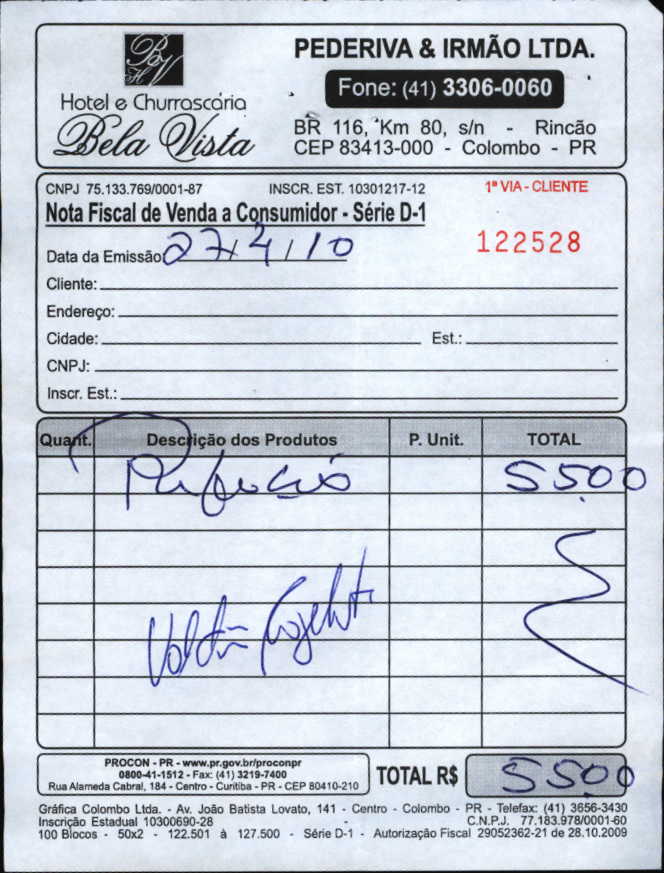 BV
H
Hotel e Churrascaria
Bela Vista
PEDERIVA & IRMÃO LTDA.
Fone: (41) 3306-0060
BR 116, Km 80, s/n - Rincão
CEP 83413-000 - Colombo - PR
CNPJ 75.133.769/0001-87 INSCR. EST. 10301217-12 1ª VIA - CLIENTE
Nota Fiscal de Venda a Consumidor - Série D-1
122528
Data da Emissão: 27/4/10
Cliente:
Endereço:
Cidade: Est.:
CNPJ:
Inscr. Est.:
Quant. Descrição dos Produtos P. Unit. TOTAL
Refeições 55.00
PROCON - PR - www.pr.gov.br/proconpr
0800-41-1512 - Fax: (41) 3219-7400
Rua Alameda Cabral, 184 - Centro - Curitiba - PR - CEP 80410-210
TOTAL R$ 55.00
Gráfica Colombo Ltda. - Av. João Batista Lovato, 141 - Centro - Colombo - PR - Telefax: (41) 3656-3430
Inscrição Estadual 10300690-28 C.N.P.J. 77.183.978/0001-60
100 Blocos - 50x2 - 122.501 à 127.500 - Série D-1 - Autorização Fiscal 29052362-21 de 28.10.2009